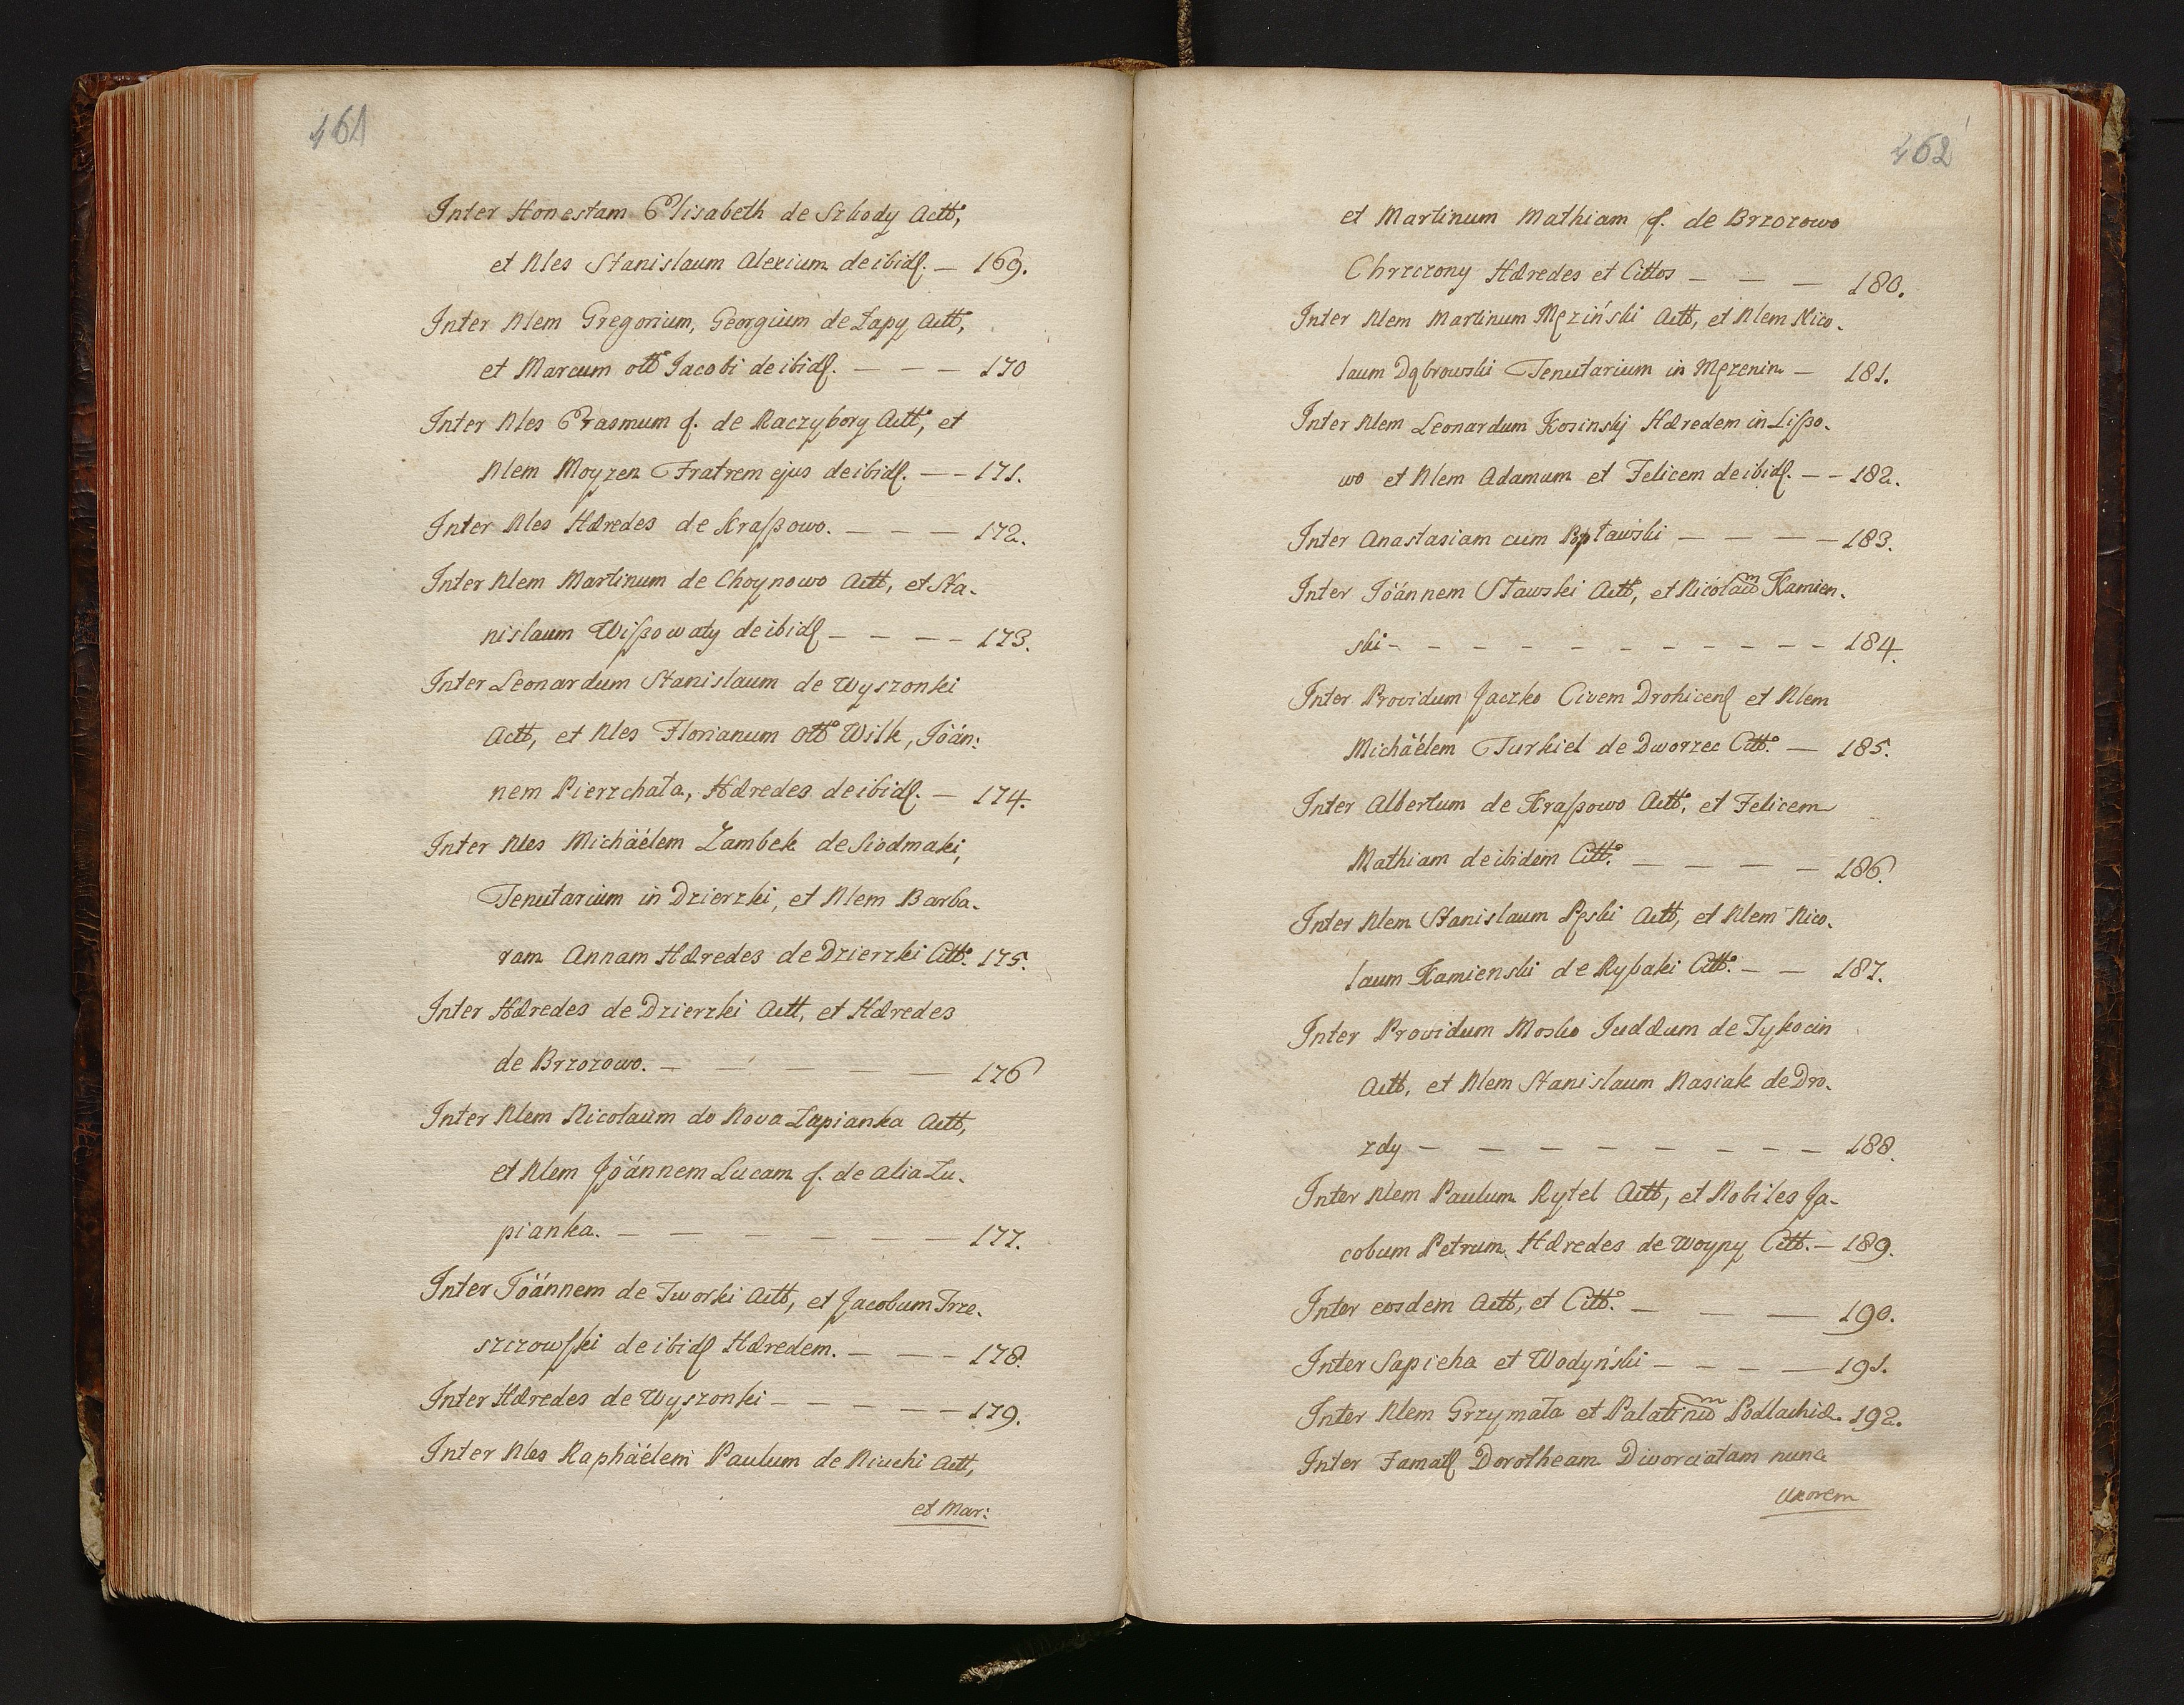 461
Inter Honestam Elisabeth de Szkody Actt,
et Nles Stanislaum Alexium de ibid. — 169.
Inter Nlem Gregorium, Georgium de Łapy Actt,
et Marcum ott Jacobi de ibid. — — — 170
Inter Nles Erasmum f. de Raczyborg Actt, et
Nlem Moyzen Fratrem ejus de ibid. — — 171.
Inter Nles Hæredes de Kraßowo. — — — 172.
Inter Nlem Martinum de Choynowo Actt, et Sta-
nislaum Wißowaty de ibid — — — — 173.
Inter Leonardum Stanislaum de Wyszonki
Actt, et Nles Florianum Otto Wilk, Joán:
nem Pierzchała, Hæredes de ibid. — 174.
Inter Nles Michäélem Zambek de Siodmaki,
Tenutarium in Dzierzki, et Nlem Barba-
ram Annam Hæredes de Dzierzki Citt. 175.
Inter Hæredes de Dzierzki Actt, et Hæredes
de Brzozowo. — — — — — 176
Inter Nlem Nicolaum do Nova Łapianka Actt,
et Nlem Jöánnem Lucam f. de alia Lu-
pianka. — — — — — — 177.
Inter Jöánnem de Tworki Actt, et Jacobum Trze-
szczowski de ibid Hæredem. — — — 178.
Inter Hæredes de Wyszonki — — — — — 179.
Inter Nles Raphäélem Paulum de Niuchi Actt,
et Mar:
462
et Martinum Mathiam f. de Brzozowo
Chrzczony Hæredes et Cittos — — — 180.
Inter Nlem Martinum Męziński Actt, et Nlem Nico-
laum Dąbrowski Tenutarium in Męzenin — 181.
Inter Nlem Leonardum Kosinskj Hæredem in Lißo-
wo et Nlem Adamum et Felicem de ibid. — — 182.
Inter Anastasiam cum — — — — 183.
Inter Jöánnem Stawski Actt, et Nicolaum Kamien-
ski — — — — — — — — — — — 184.
Inter Providum Jaczko Civem Drohicen et Nlem
Michäélem Turkiel de Dworzec Citt. — 185.
Inter Albertum de Kraßowo Actt, et Felicem
Mathiam de ibidem Citt. — — — — 186.
Inter Nlem Stanislaum Pęski Actt, et Nlem Nico-
laum Kamienski de Rybaki Citt. — — 187.
Inter Providum Mosko Judæum de Tykocin
Actt, et Nlem Stanislaum Nasiak de Dro-
zdy — — — — — — — — — 188.
Inter Nlem Paulum Rytel Actt, et Nobiles Ja-
cobum Petrum Hæredes de Woypy Citt. — 189.
Inter eosdem Actt, et Citt. — — — 190.
Inter Sapieha et Wodyński — — — — 191.
Inter Nlem Grzymała et Palatinum Podlachiæ. 192.
Inter Famat Dorotheam Divorciatam nunc
Uxorem